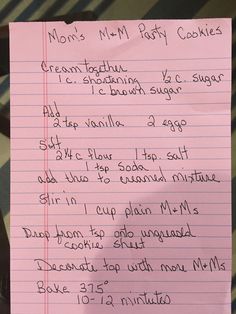 Mom's M+M Party Cookies
Cream together
1 c. shortening ½ c. sugar
1 c brown sugar
Add
2 tsp vanilla 2 eggs
Sift
2¼ c flour 1 tsp. salt
1 tsp soda
add this to creamed mixture
Stir in
1 cup plain M+Ms
Drop from tsp onto ungreased
cookie sheet
Decorate top with more M+Ms
Bake 375°
10-12 mintutes